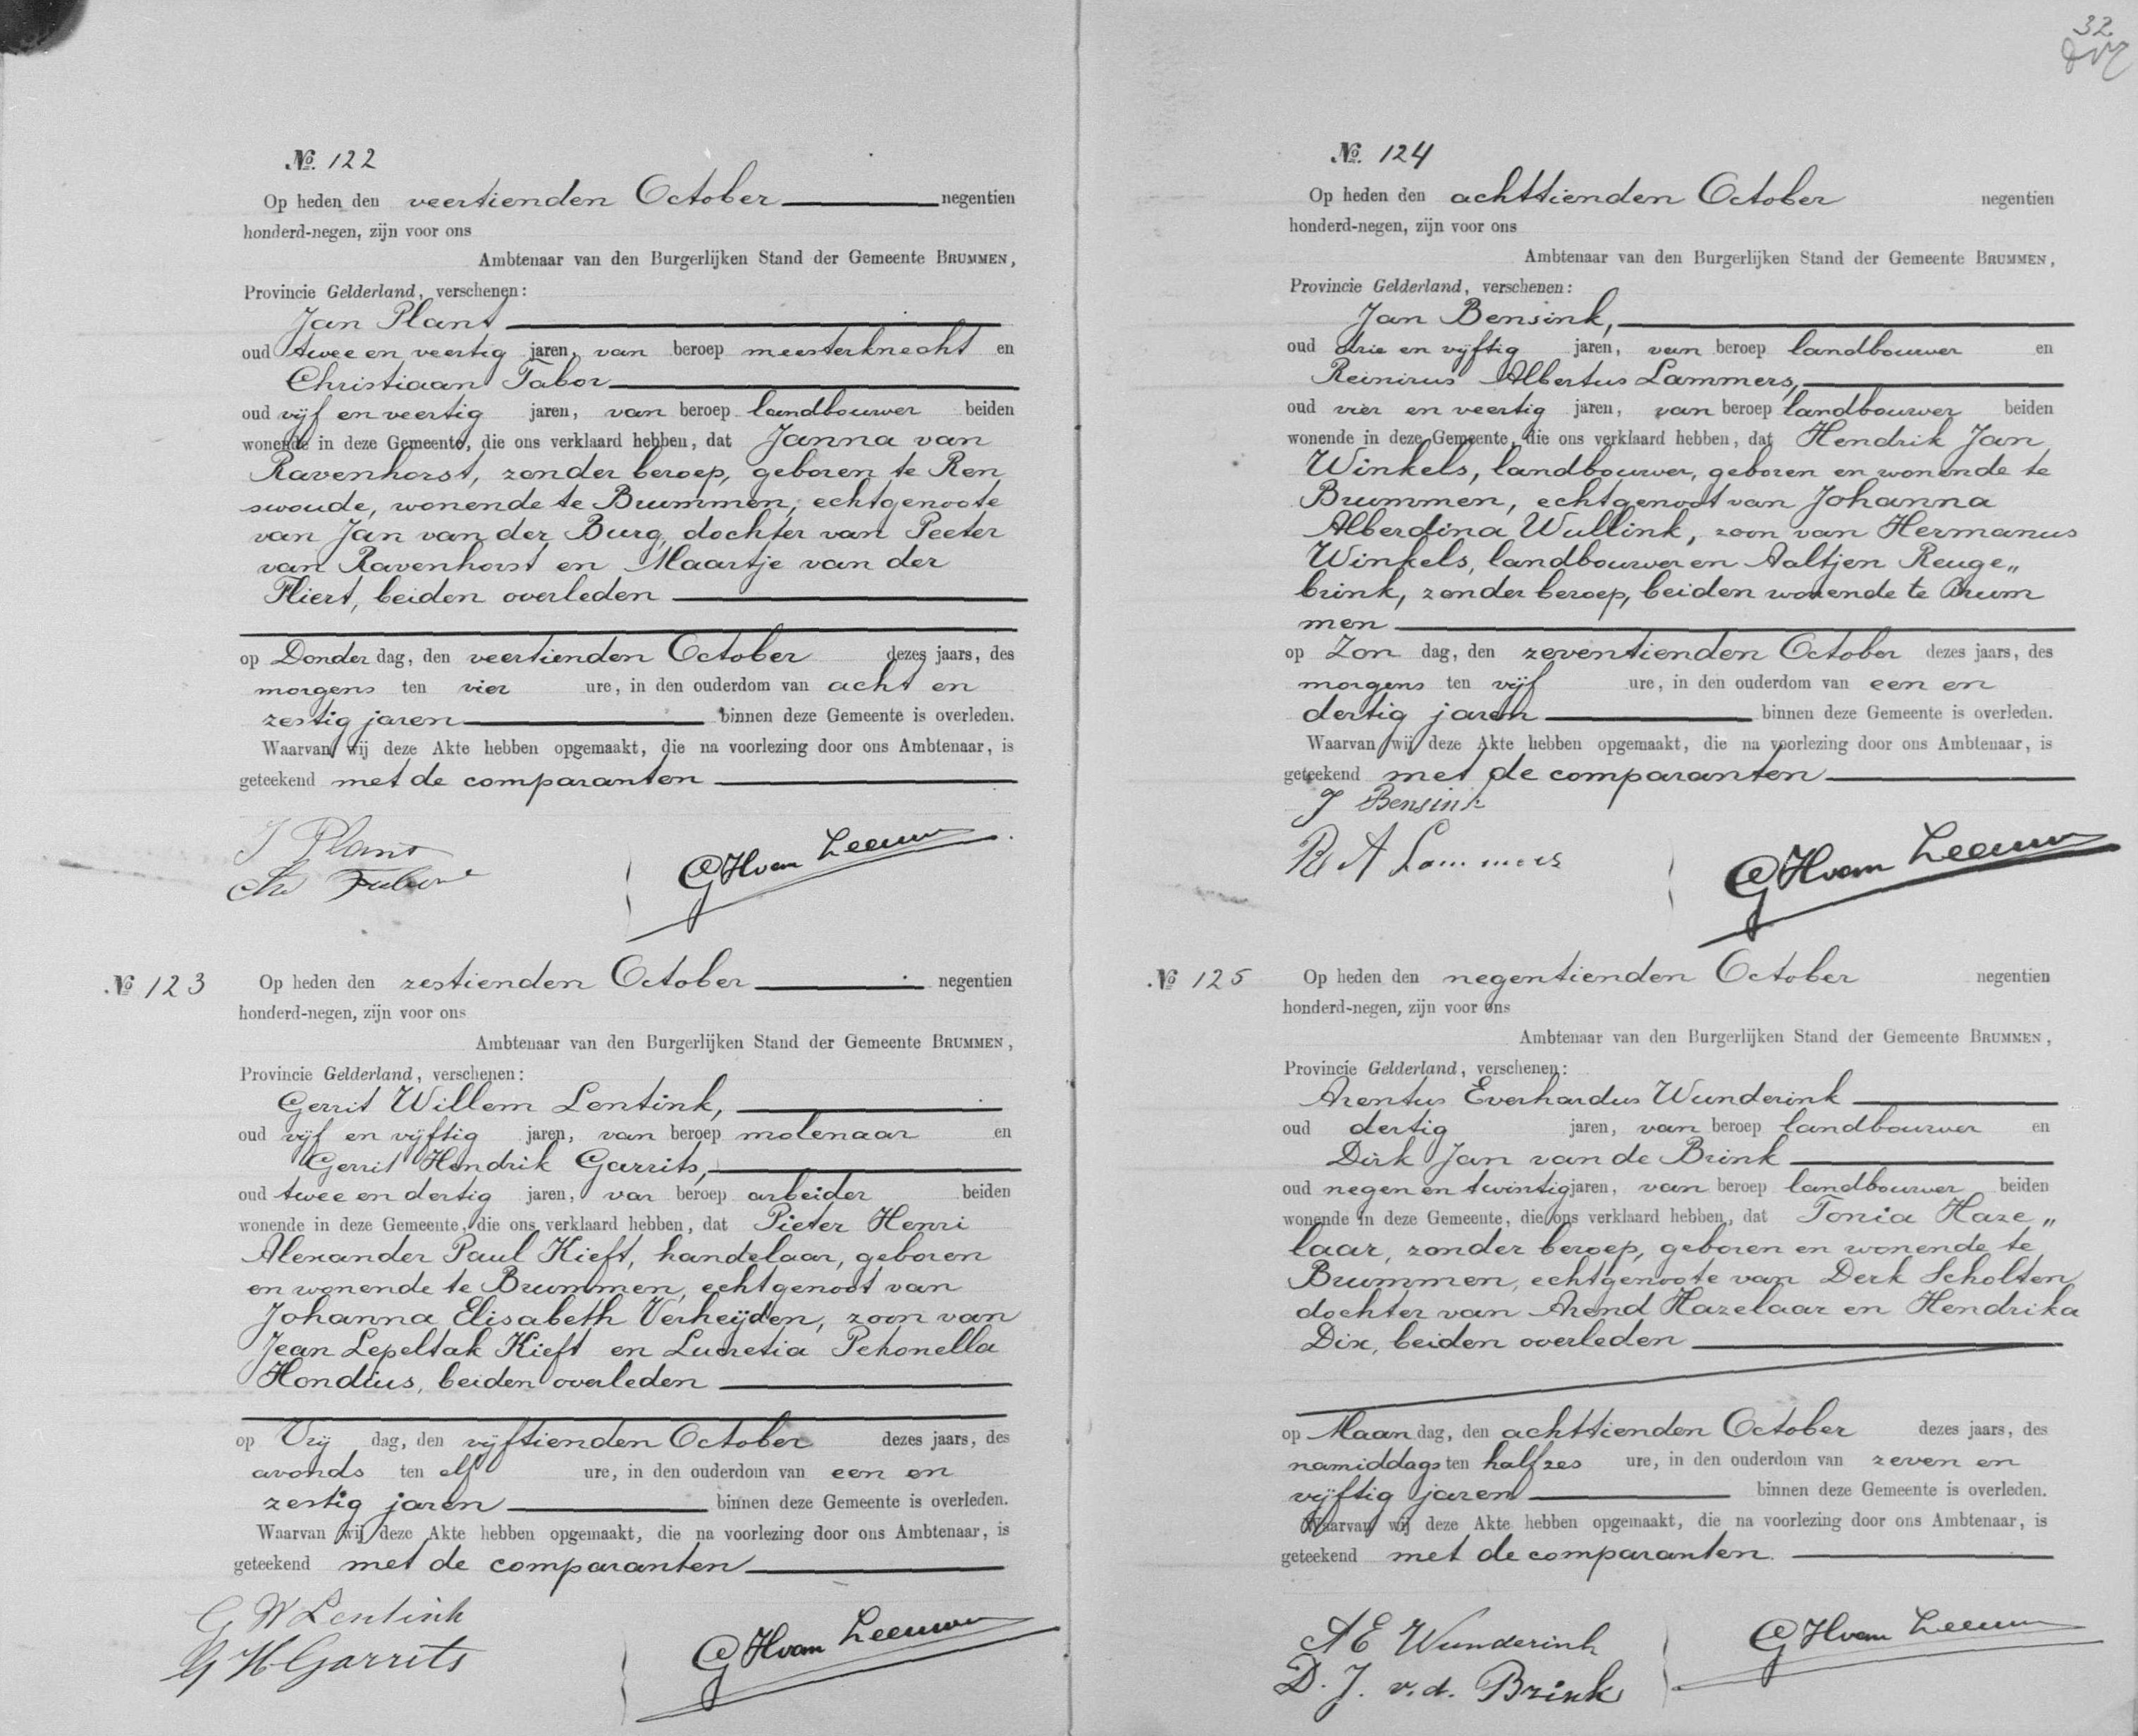 32
No. 122
Op heden den veertienden October negentien
honderd-negen, zijn voor ons
Ambtenaar van den Burgerlijken Stand der Gemeente BRUMMEN,
Provincie Gelderland, verschenen:
Jan Plant
oud twee en veertig jaren, van beroep meesterknecht en
Christiaan Tabor
oud vijf en veertig jaren, van beroep landbouwer beiden
wonende in deze Gemeente, die ons verklaard hebben, dat Janna van
Ravenhorst, zonder beroep, geboren te Ren
swoude, wonende te Brummen, echtgenoote
van Jan van der Burg, dochter van Peeter
van Ravenhorst en Maartje van der
Fliert, beiden overleden
op Donder dag, den veertienden October dezes jaars, des
morgens ten vier ure, in den ouderdom van acht en
zestig jaren binnen deze Gemeente is overleden.
Waarvan wij deze Akte hebben opgemaakt, die na voorlezing door ons Ambtenaar, is
geteekend met de comparanten
J Plant
GHvan Leeuwen
No 123
Op heden den zestienden October negentien
honderd-negen, zijn voor ons
Ambtenaar van den Burgerlijken Stand der Gemeente BRUMMEN,
Provincie Gelderland, verschenen:
Gerrit Willem Lentink,
oud vijf en vijftig jaren, van beroep molenaar en
Gerrit Hendrik Garrits,
oud twee en dertig jaren, van beroep arbeider beiden
wonende in deze Gemeente, die ons verklaard hebben, dat Pieter Henri
Alexander Paul Kieft, handelaar, geboren
en wonende te Brummen, echtgenoot van
Johanna Elisabeth Verheijden, zoon van
Jean Lepeltak Kieft en Lucretia Pehonella
Hondius, beiden overleden
op Vrij dag, den vijftienden October dezes jaars, des
avonds ten elf ure, in den ouderdom van een en
zestig jaren binnen deze Gemeente is overleden.
Waarvan wij deze Akte hebben opgemaakt, die na voorlezing door ons Ambtenaar, is
geteekend met de comparanten
G W Lentink
G H Garrits
GHvan Leeuwen
No. 124
Op heden den achttienden October negentien
honderd-negen, zijn voor ons
Ambtenaar van den Burgerlijken Stand der Gemeente BRUMMEN,
Provincie Gelderland, verschenen:
Jan Bensink,
oud drie en vijftig jaren, van beroep landbouwer en
Reinirus Albertus Lammers,
oud vier en veertig jaren, van beroep landbouwer beiden
wonende in deze Gemeente, die ons verklaard hebben, dat Hendrik Jan
Winkels, landbouwer, geboren en wonende te
Brummen, echtgenoot van Johanna
Alberdina Wullink, zoon van Hermanus
Winkels, landbouwer en Aaltjen Reuge„
brink, zonder beroep, beiden wonende te Brum
men
op Zon dag, den zeventienden October dezes jaars, des
morgens ten vijf ure, in den ouderdom van een en
dertig jaren binnen deze Gemeente is overleden.
Waarvan wij deze Akte hebben opgemaakt, die na voorlezing door ons Ambtenaar, is
geteekend met de comparanten
J Bensink
R A Lammers
GHvan Leeuwen
No 125
Op heden den negentienden October negentien
honderd-negen, zijn voor ons
Ambtenaar van den Burgerlijken Stand der Gemeente BRUMMEN,
Provincie Gelderland, verschenen:
Arentus Everhardus Wunderink
oud dertig jaren, van beroep landbouwer en
Dirk Jan van de Brink
oud negen en twintig jaren, van beroep landbouwer beiden
wonende in deze Gemeente, die ons verklaard hebben, dat Tonia Haze„
laar, zonder beroep, geboren en wonende te
Brummen, echtgenoote van Derk Scholten,
dochter van Arend Hazelaar en Hendrika
Dix, beiden overleden
op Maan dag, den achttienden October dezes jaars, des
namiddags ten half zes ure, in den ouderdom van zeven en
vijftig jaren binnen deze Gemeente is overleden.
Waarvan wij deze Akte hebben opgemaakt, die na voorlezing door ons Ambtenaar, is
geteekend met de comparanten.
A E Wunderink
D. J. v. d. Brink
GHvan Leeuwen